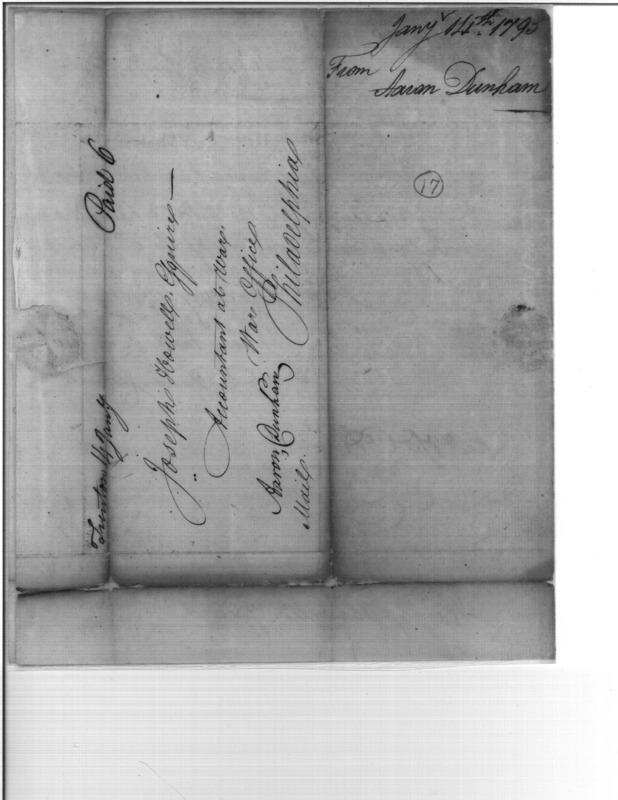 Jany 14th. 1793
From
Aaron Dunham
17
Trenton 14 Jany
Paid 6
Joseph Howell Esquire —
Accountant at War.
War Office
Philadelphia
Aaron Dunham
Mail.